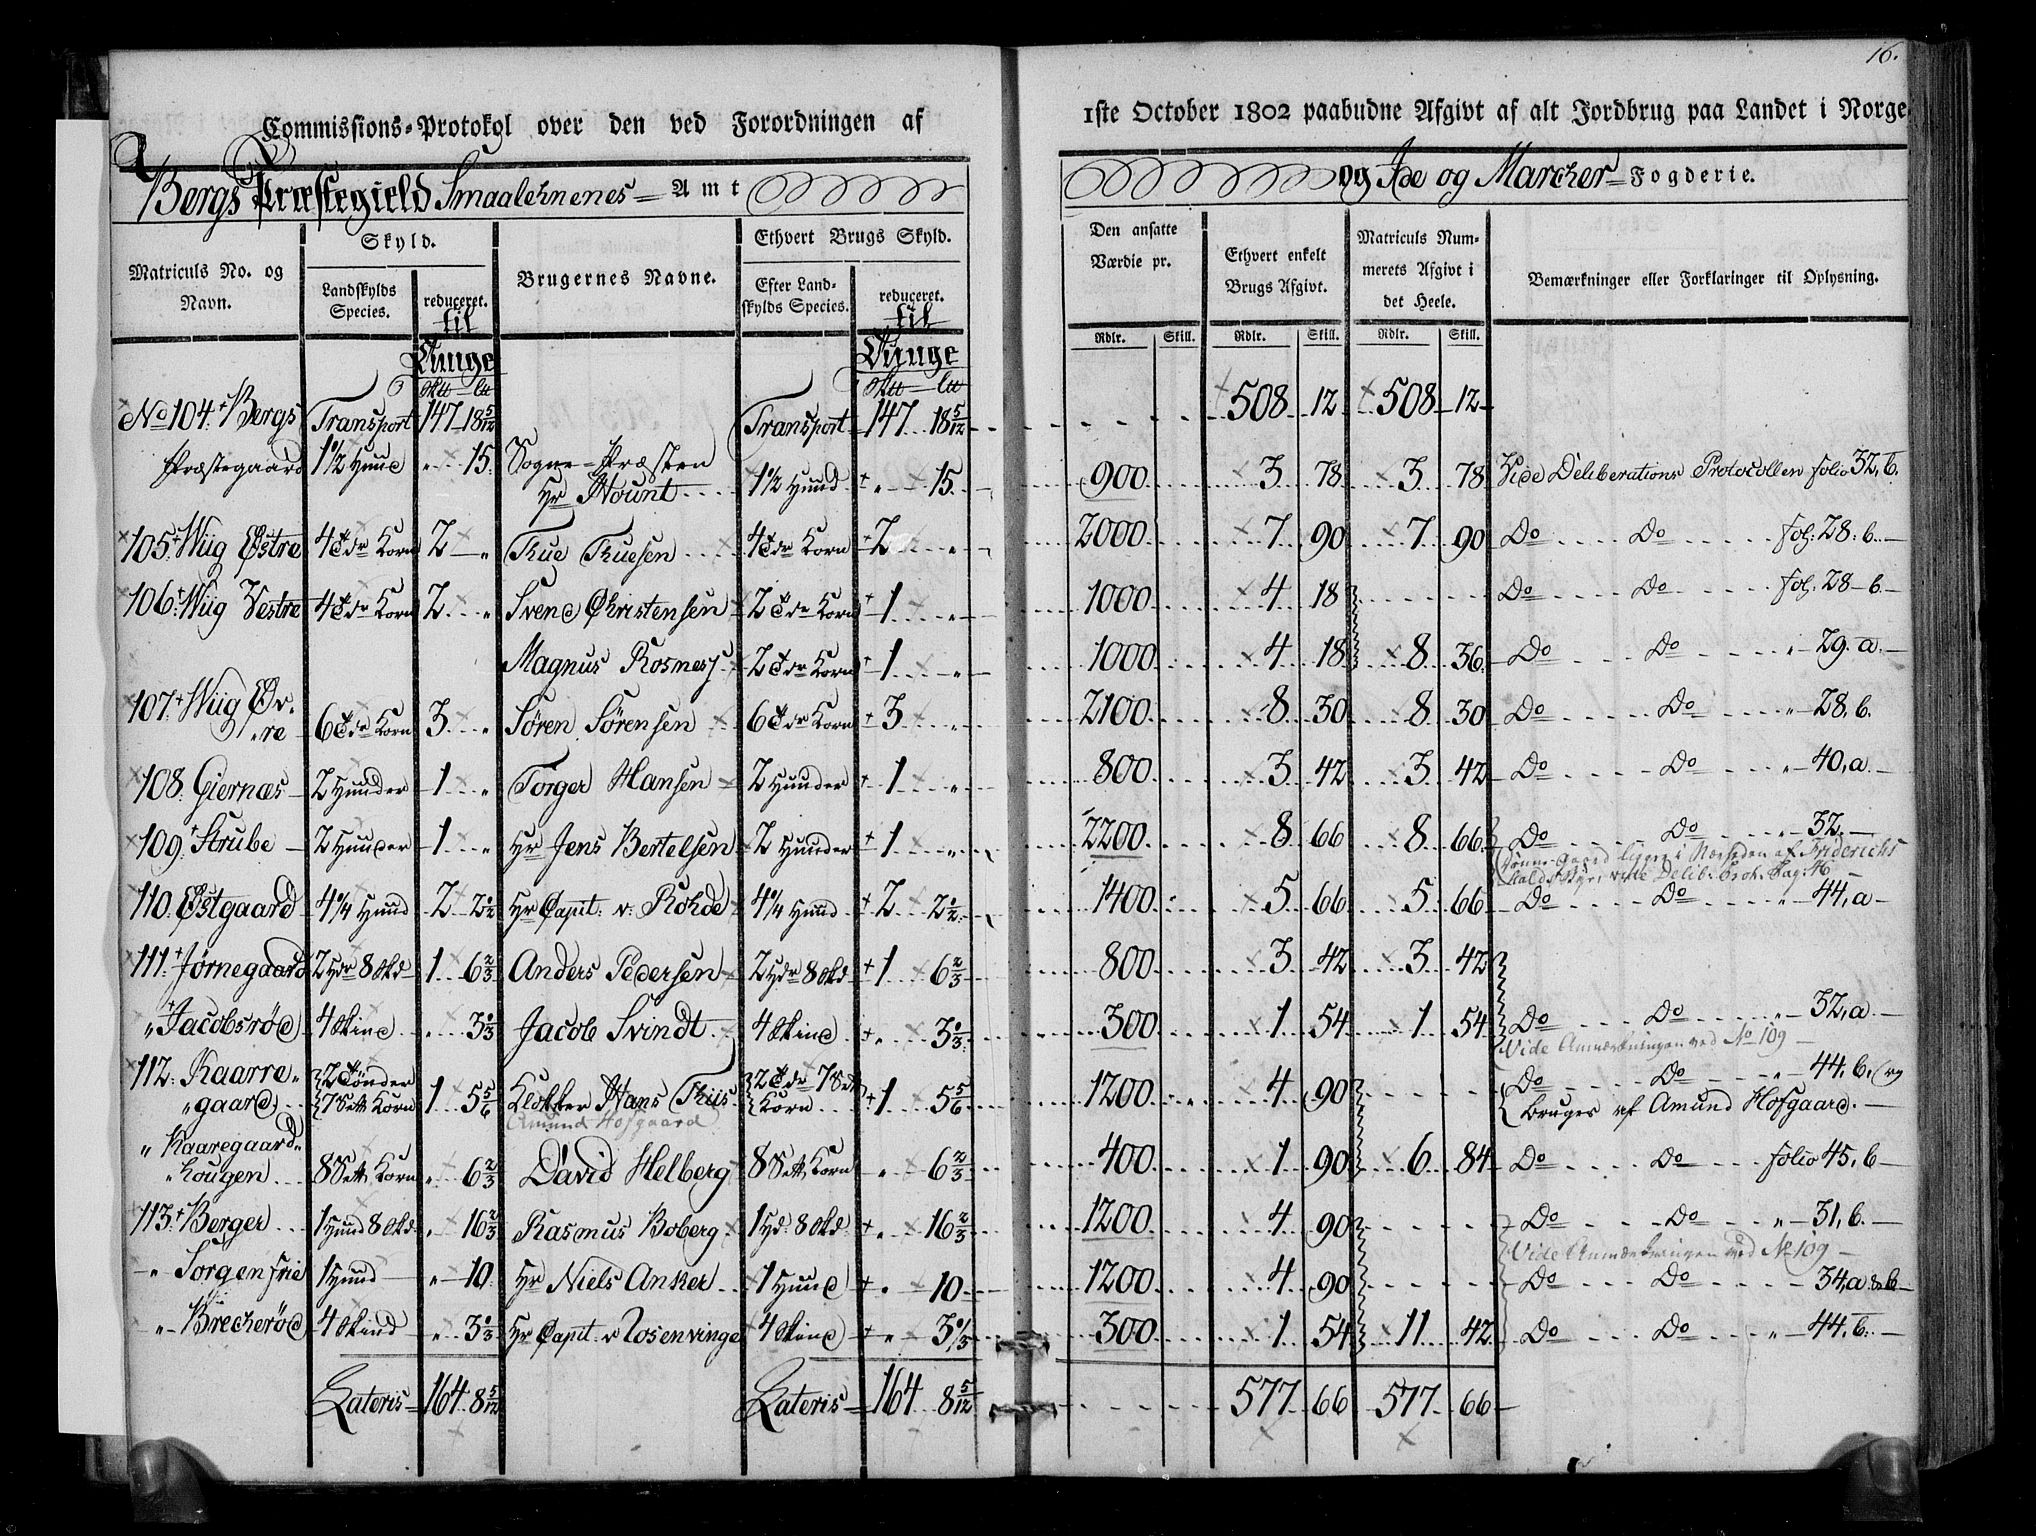 16.
Commissions-Protokol over den ved Forordningen af 1ste October 1802 paabudne Afgivt af alt Jordbrug paa Landet i Norge
Bergs Præstegield Smaalehnenes Amt og Ide og Marcker Fogderie.
Matriculs No. og Navn. Skyld. Brugernes Navne. Ethvert Brugs Skyld. Den ansatte Værdie pr. Ethvert enkelt Brugs Afgivt. Matriculs Nummerets Afgivt i det Heele. Bemærkninger eller Forklaringer til Oplysning.
Landskylds Species. reduceret. til Tunge Efter Landskylds Species. reduceret. til Tunge Rdlr. Skill. Rdlr. Skill. Rdlr. Skill.
Transport 147 18 5/12 Transport 147 18 5/12 508 12 508 12
No 104. Bergs Præstegaard 1 1/2 Hund " 15. Sogne-Præsten Hr Hount 1 1/2 Hund " 15. 900 3 78 3 78 Vide Deliberations Protocollen folio 32, b.
105. Wiig Østre 4 Tdr Korn 2 " True Truesen 4 Tdr Korn 2 " 2000 7 90 7 90 Do Do fol. 28. b.
106. Wiig Vestre 4 Tdr Korn 2 " Svend Christensen 2 Tdr Korn 1 " 1000 4 18 Do Do fol. 28 b.
Magnus Rosness 2 Tdr Korn 1 " 1000 4 18 8 36 Do Do " 29. a.
107. Wiig Øvre 6 Tdr Korn 3 " Søren Sørensen 6 Tdr Korn 3 " 2100 8 30 8 30 Do Do " 28, b.
108. Giernæs 2 Hunder 1 " Torger Hansen 2 Hunder 1 " 800 3 42 3 42 Do Do " 40, a.
109. Strube 2 Hunder 1 " Hr Jens Bertelsen 2 Hunder 1 " 2200 8 66 8 66 Do Do " 32.
Denne Gaard ligger i Nærheden af Friderichs
halds Bye, vide Delib: Prot. Pag: 46
110. Østgaard 4 1/4 Hund 2 2 1/2 Hr Capit: v. Rohde 4 1/4 Hund 2 2 1/2 1400 5 66 5 66 Do Do " 44, a
111. Jørnegaard 2 Hdr 8 Skd 1 6 2/3 Anders Pedersen 2 Hdr 8 Skd 1 6 2/3 800 3 42 3 42
" Jacobsrød 4 Skind " 3 1/3 Jacob Svindt 4 Skind " 3 1/3 300 1 54 1 54 Do Do " 32, a
Vide Anmærkningen ved No 109
112. Kaarregaard 2 Tønder 7 Sett Korn 1 5 5/6 Klokker Hans Thiis 2 Tdr 7 Set Korn 1 5 5/6 1200 4 90 Do Do " 44, b, og
Amund Hofgaard bruges af Amund Hofgaard.
" Kaaregaard Hougen 8 Sett Korn " 6 2/3 David Helberg 8 Sett Korn " 6 2/3 400 1 90 6 84 Do Do folio 45, b
113. Berger 1 Hund 8 Skd " 16 2/3 Rasmus Boberg 1 Hd. 8 Skd " 16 2/3 1200 4 90 Do Do " 31, b.
Vide Anmærkningen ved No 109
" Sorgenfrie 1 Hund " 10. Hr Niels Anker 1 Hund " 10 1200 4 90 Do Do 34, a & b
" Brecherød 4 Skind " 3 1/3 Hr Capit v Rosenvinge 4 Skind " 3 1/3 300 1 54 11 42 Do Do " 44, b.
Lateris 164 8 5/12 Lateris 164 8 5/12 577 66 577 66